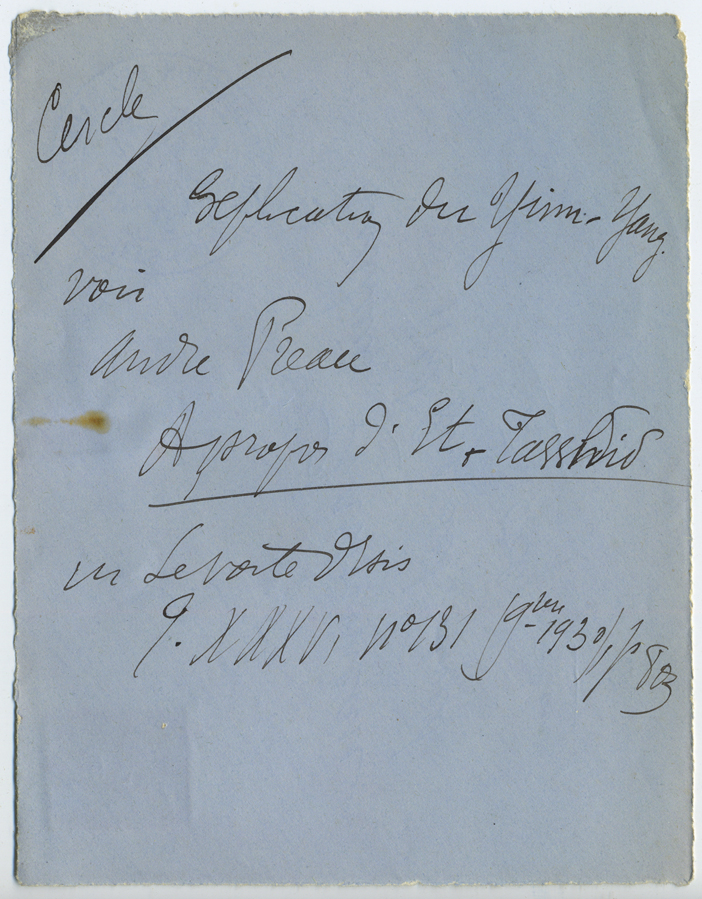 Cercle
Explication du Yinn-Yang.
voir
André Preau
A propos d'Et-Tasshwîd
in Le voile d'Isis
T. XXXV, no 131 (9bre 1930), p 803